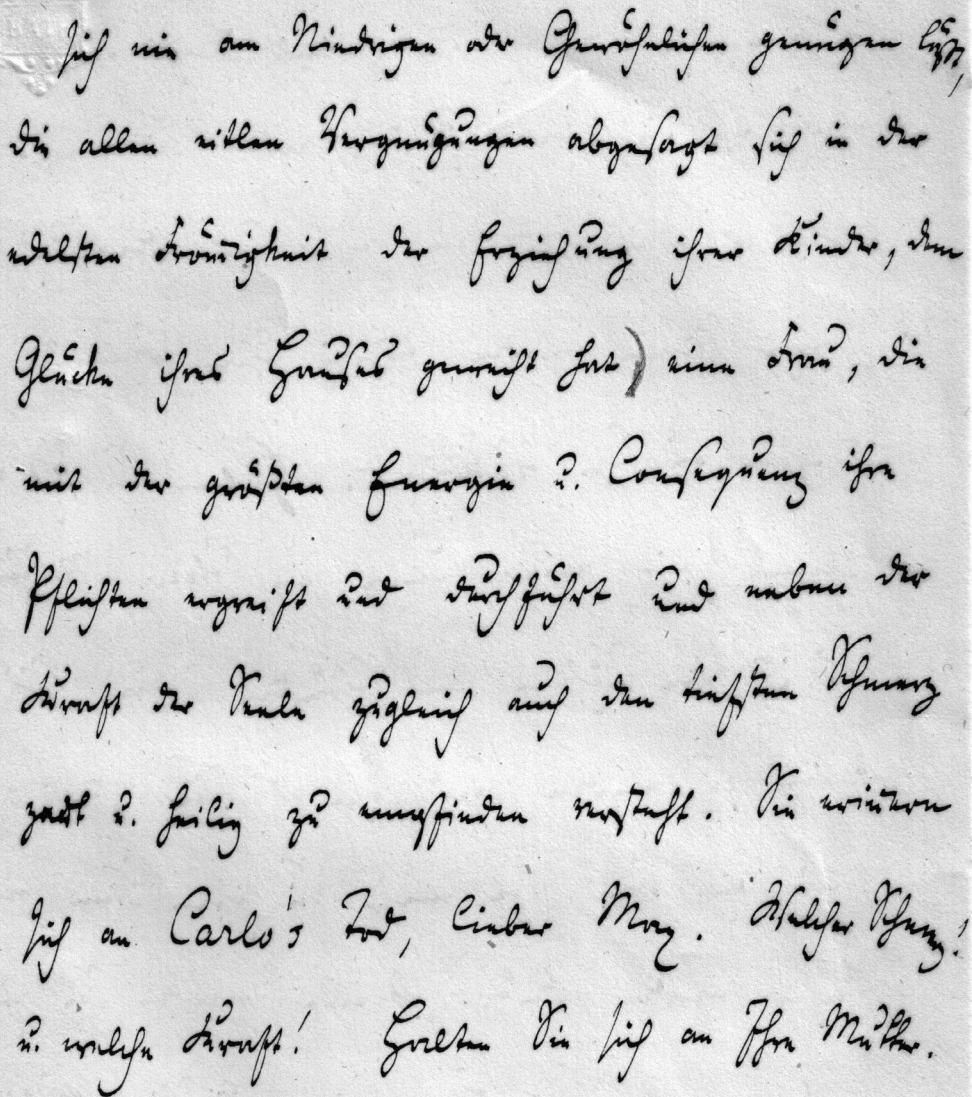 sich nie am Niedrigen oder Gewöhnlichen genügen läßt,
die allen eitlen Vergnügungen abgesagt sich in der
edelsten Freudigkeit der Erziehung ihrer Kinder, dem
Glücke ihres Hauses geweiht hat) eine Frau, die
mit der größten Energie u. Consequenz ihre
Pflichten ergreift und durchführt und neben der
Kraft der Seele zugleich auch den tiefsten Schmerz
zart u. heilig zu empfinden versteht. Sie erinnern
sich an Carlo's Tod, lieber Max. Welcher Schmerz!
u. welche Kraft! Halten Sie sich an Ihre Mutter.